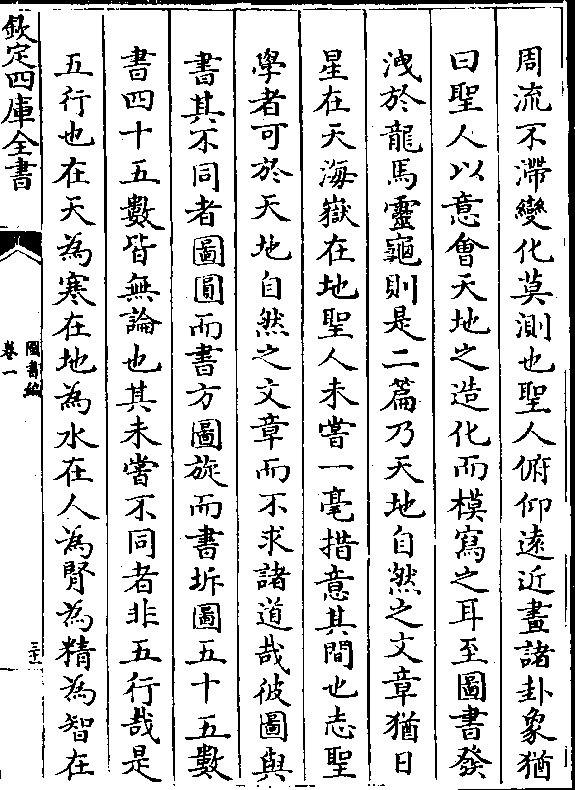 周流不滯變化莫測也聖人俯仰遠近畫諸卦象猶
曰聖人以意會天地之造化而模寫之耳至圖書發
洩於龍馬靈龜則是二篇乃天地自然之文章猶日
星在天海嶽在地聖人未嘗一毫措意其間也志聖
學者可於天地自然之文章而不求諸道哉彼圖與
書其不同者圖圓而書方圖旋而書坼圖五十五數
書四十五數皆無論也其未嘗不同者非五行哉是
五行也在天為寒在地為水在人為腎為精為智在
欽定四庫全書
圖書編
卷一